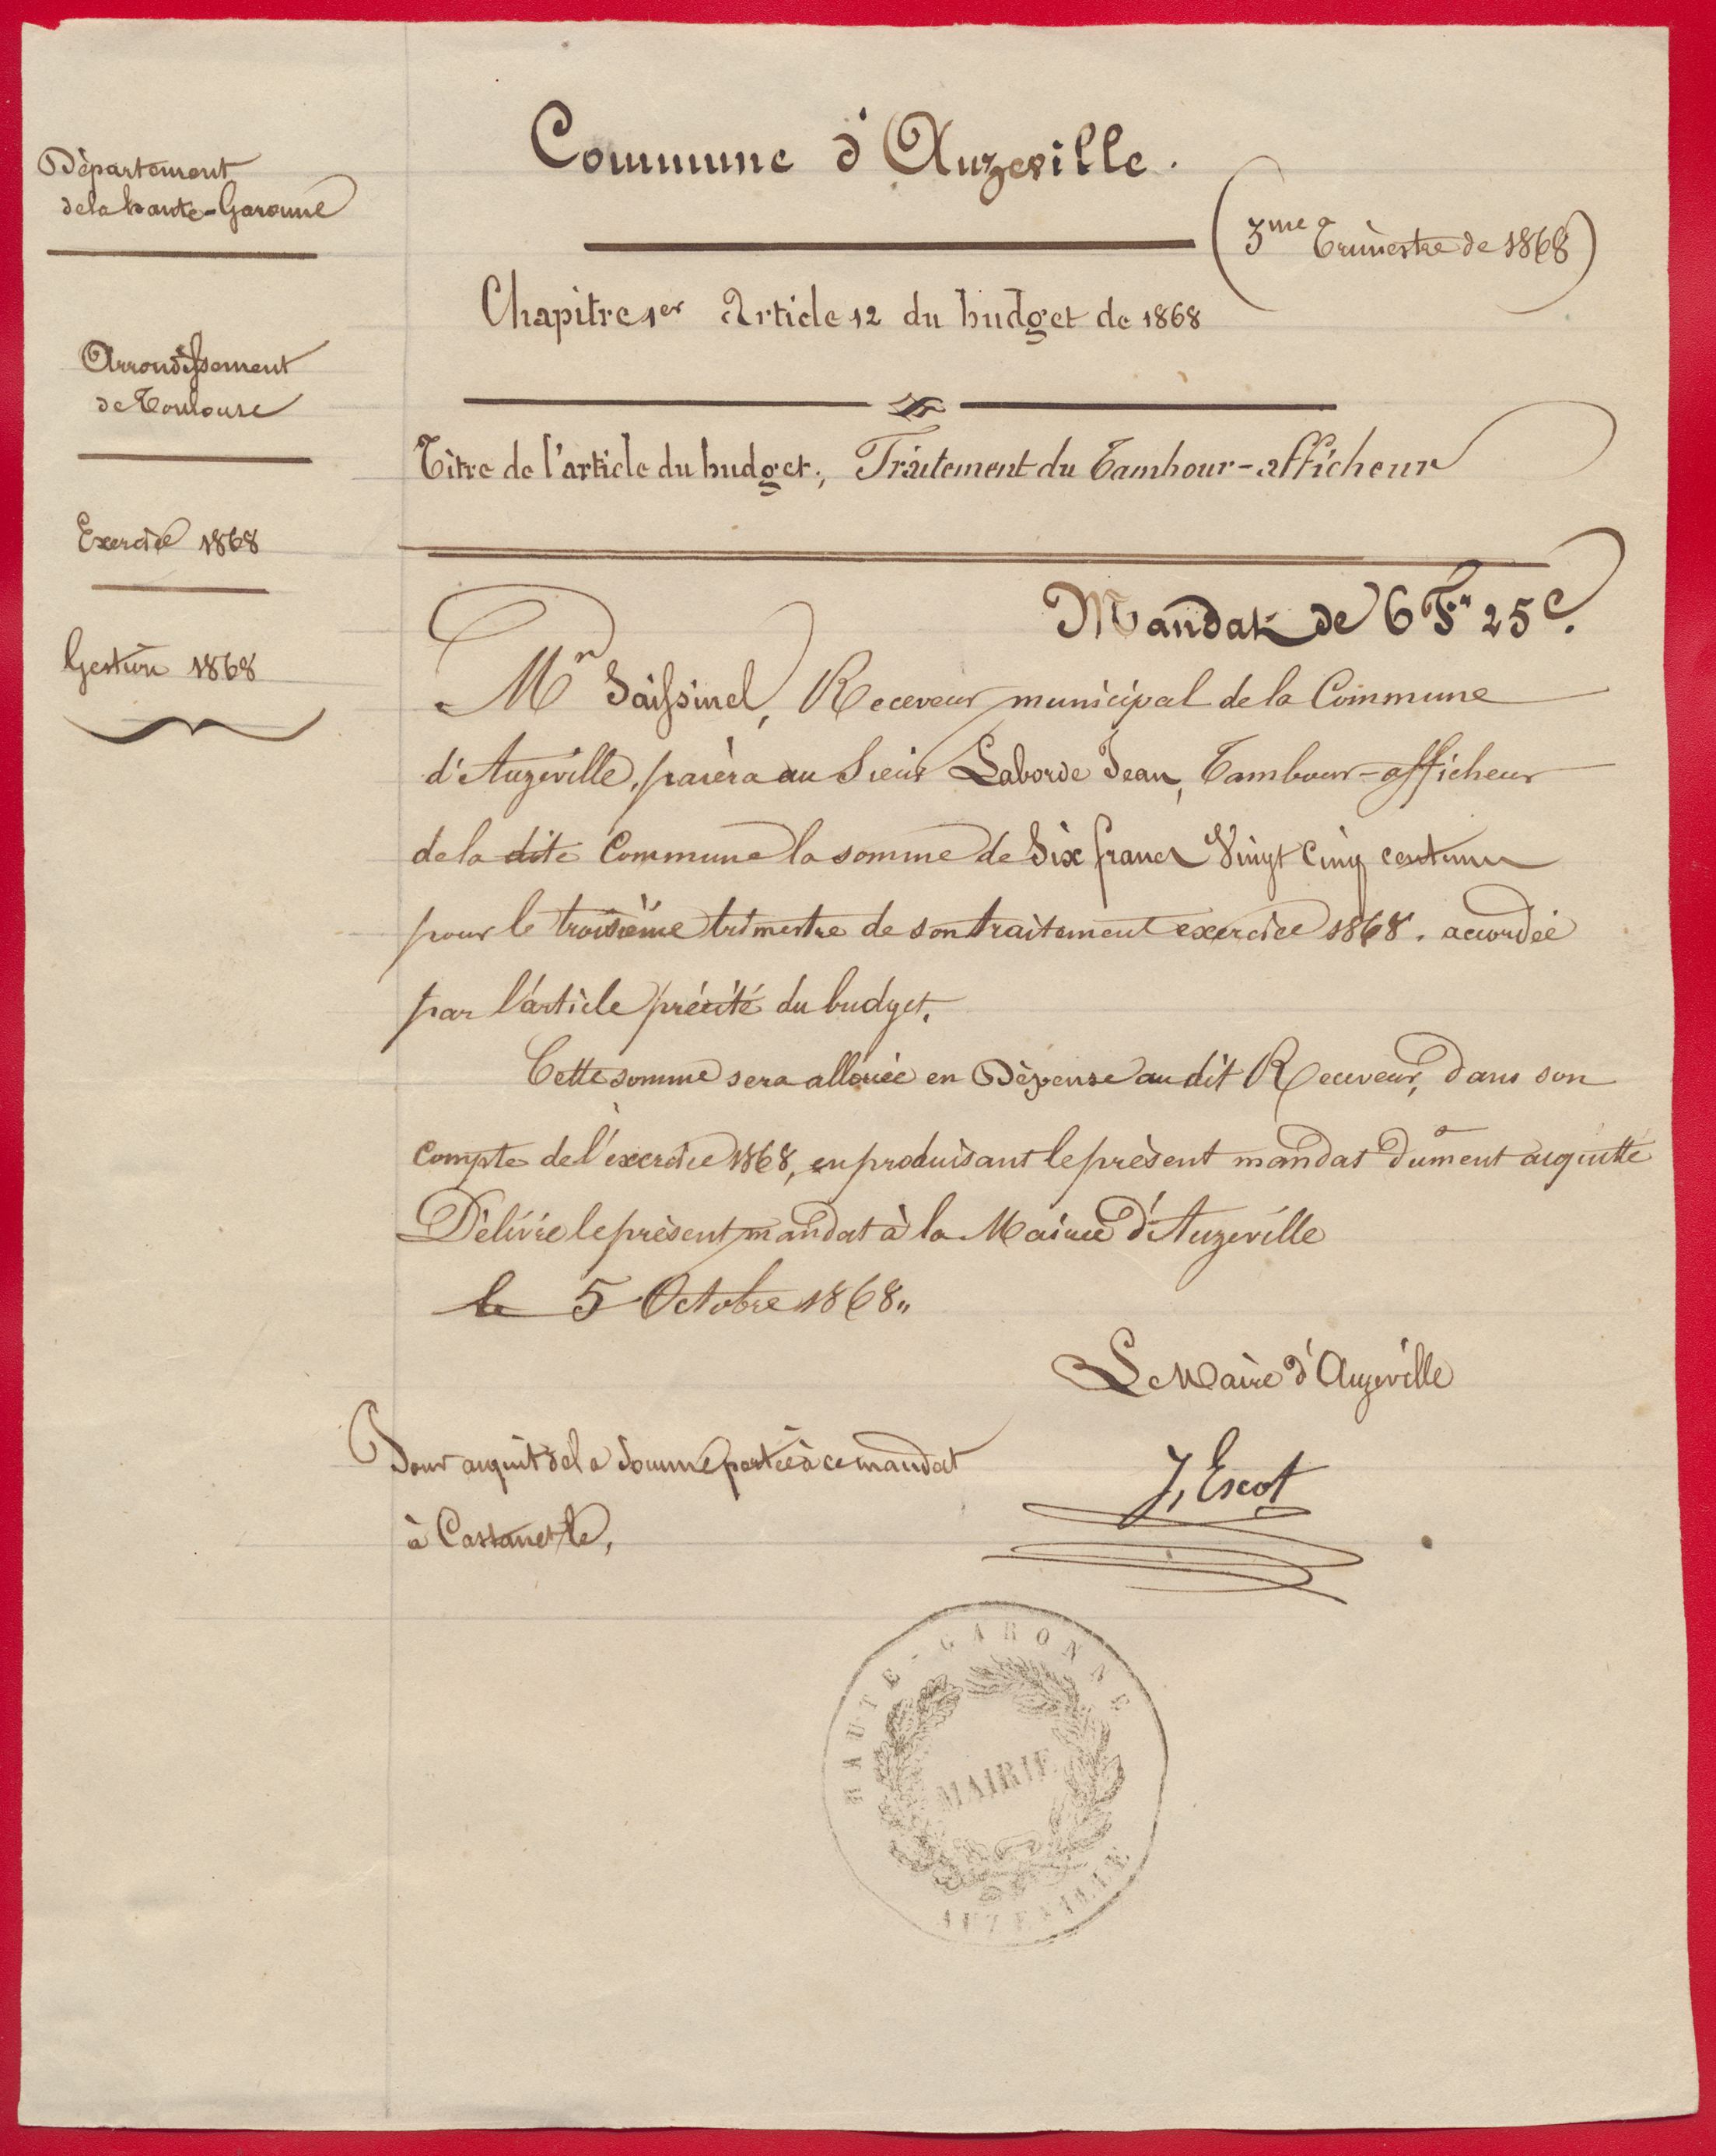 Commune d'Auzeville.
Département
de la haute-Garonne
(3me Trimestre de 1868)
Chapitre 1er Article 12 du budget de 1868
Arrondissement
de Toulouse
Titre de l'article du budget; Traitement du Tambour-afficheur
Exercice 1868
Mandat de 6 Fr 25 c.
Gestion 1868
Mr Saissinel, Receveur municipal de la Commune
d'Auzeville, paièra au Sieur Laborde Jean, Tambour-afficheur
de la dite Commune la somme de Six francs Vingt Cinq centimes
pour le troisième trimestre de son traitement exercice 1868. accordée
par l'article précité du budget.
Cette somme sera allouée en Dépense au dit Receveur, dans son
compte de l'éxercice 1868, en produisant le présent mandat dument acquitté
Délivré le présent mandat à la Mairie d'Auzeville
le 5 Octobre 1868"
Le Maire d'Auzeville
Pour acquit de la Somme portée à ce mandat
à Castanet le,
J, Escot
HAUTE-GARONNE
MAIRIE
AUZEVILLE